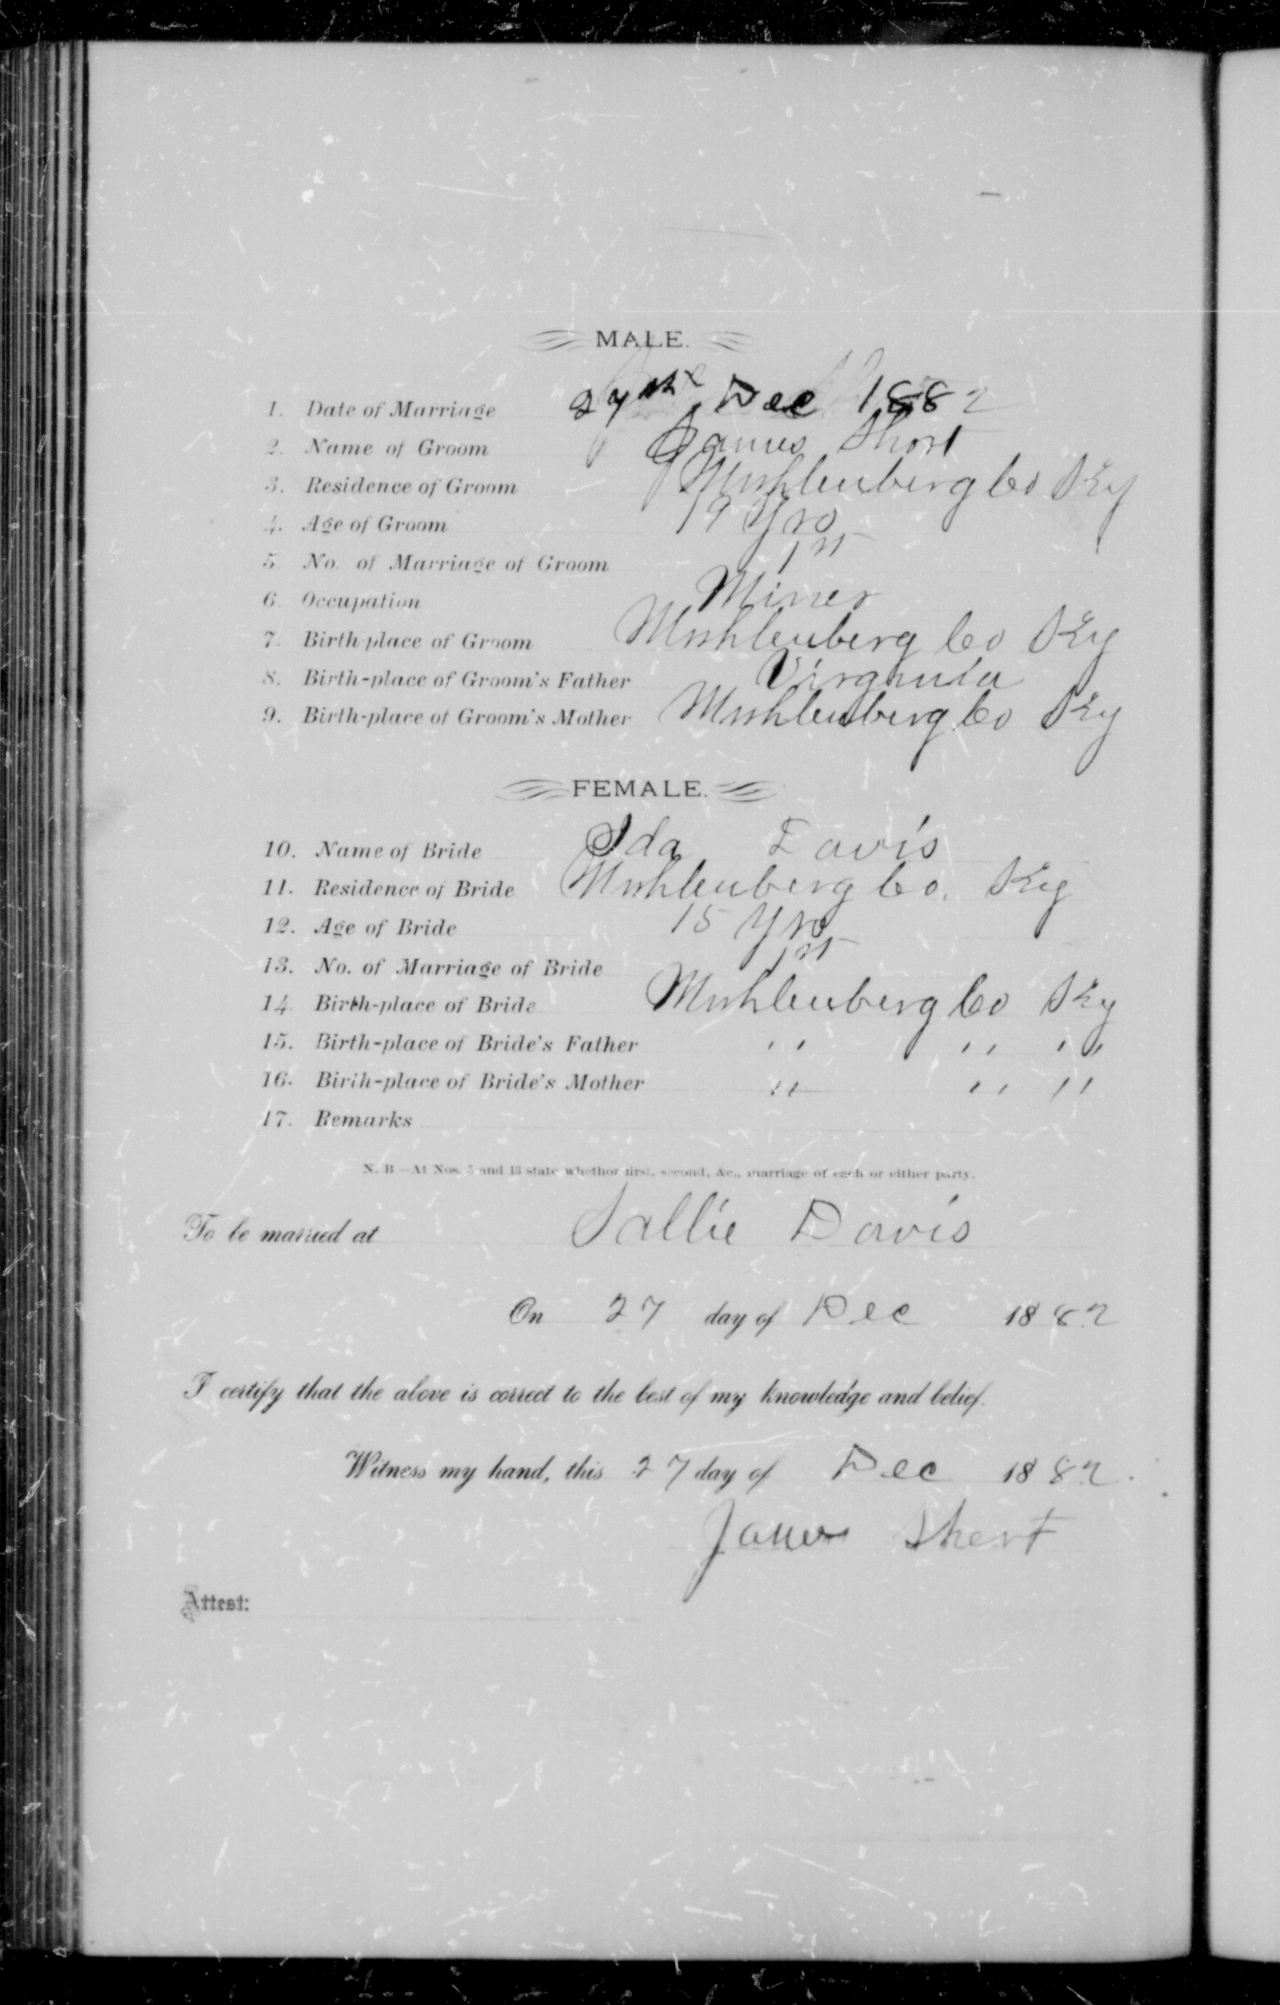 MALE.
1. Date of Marriage 27th Dec 1882
2. Name of Groom James Short
3. Residence of Groom Muhlenberg Co Ky
4. Age of Groom 19 Yrs
5. No. of Marriage of Groom 1st
6. Occupation Miner
7. Birth place of Groom Muhlenberg Co Ky
8. Birth-place of Groom's Father Virginia
9. Birth-place of Groom's Mother Muhlenberg Co Ky
FEMALE.
10. Name of Bride Ida Davis
11. Residence of Bride Muhlenberg Co. Ky
12. Age of Bride 15 Yrs
13. No. of Marriage of Bride 1st
14. Birth-place of Bride Muhlenberg Co Ky
15. Birth-place of Bride's Father " " "
16. Birth-place of Bride's Mother " " "
17. Remarks
N. B—At Nos. 5 and 13 state whether first, second, &c., marriage of each or either party.
To be married at Sallie Davis
On 27 day of Dec 1882
I certify that the above is correct to the best of my knowledge and belief.
Witness my hand, this 27 day of Dec 1882.
James Short
Attest: